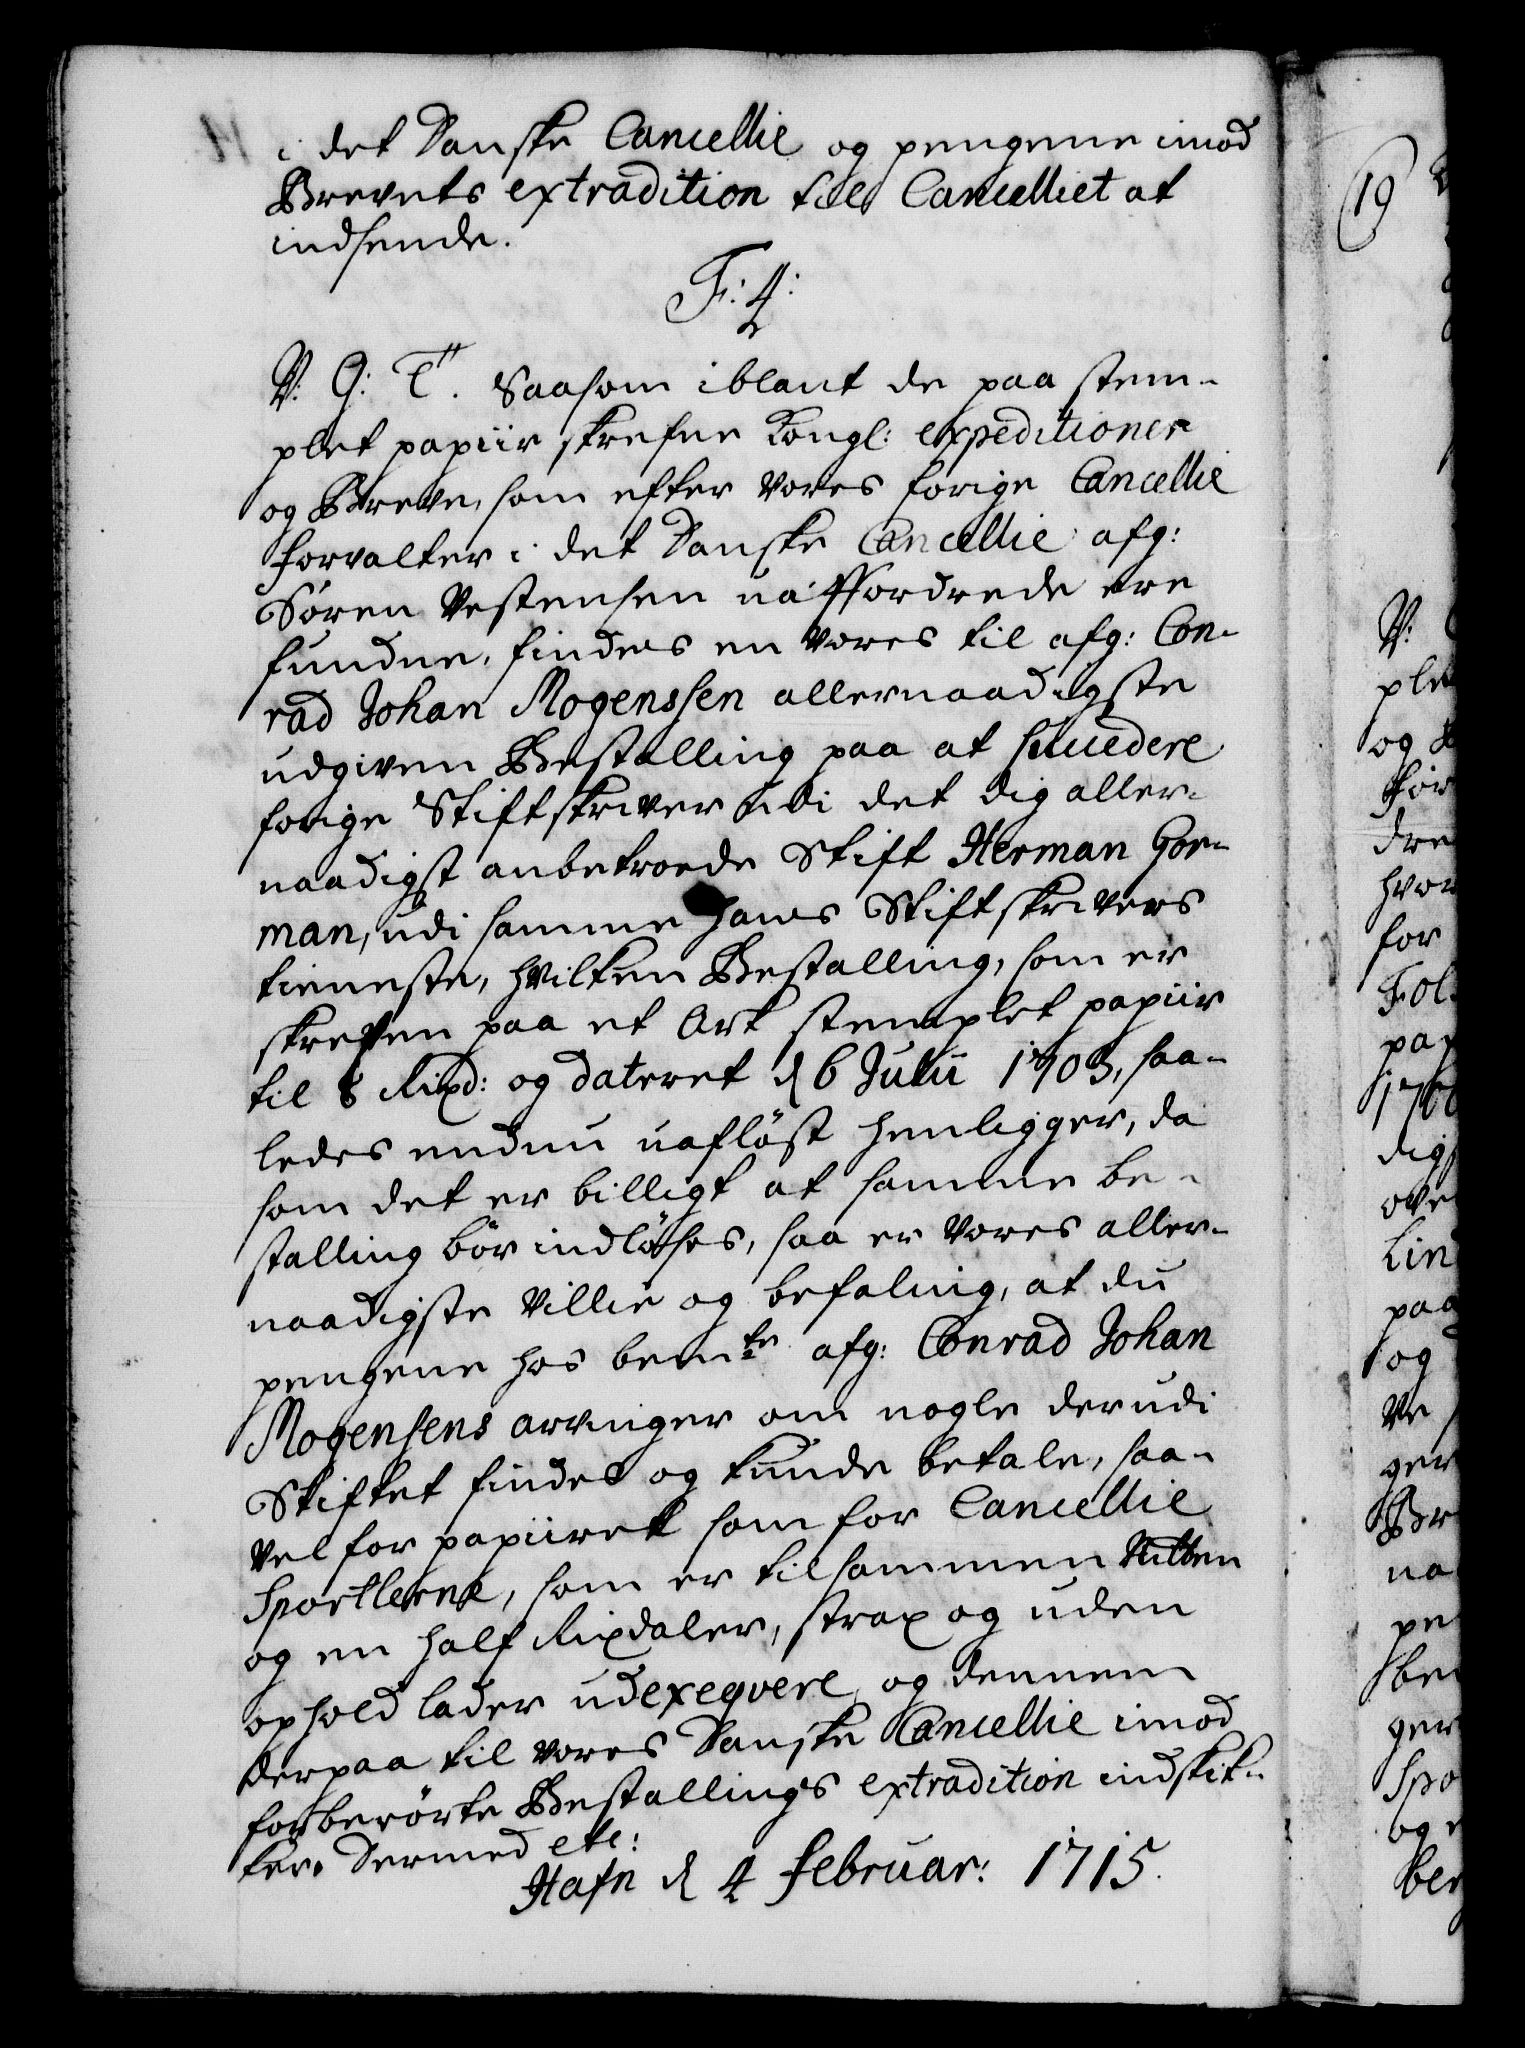 i det Danske Cancellie og pengene imod
Brevets extradition til Cancelliet at
indsende.
F: 4:
V: G: T. Saasom iblant de paa stem-
plet papiir skrefne Kongl: expeditioner
og Breve, som efter Vores forige Cancellie
forvalter i det Danske Cancellie afg:
Sören Vestensen uaffordrede ere
fundne, findes en Vores til afg: Con-
rad Johan Mogenssen allernaadigste
udgiven Bestalling paa at succedere
forige Stiftskriver udi det dig aller-
naadigst anbetroede Stift Herman Gor-
man, udi samme hans Stiftskrivers
tieneste, hvilken Bestalling, som er
skreven paa et Ark stemplet papiir
til 8 Rixd: og dateret d 6 Julii 1703, saa-
ledes endnu uaflöst henligger, da
som det er billigt at samme be-
stalling bör indlöses, saa er Vores aller-
naadigste Villie og befaling, at du
pengene hos bemte afg: Conrad Johan
Mogensens arvinger om nogle derudi
Stiftet findes og kunde betale, saa-
vel for papiiret som for Cancellie
Sportlerne, som er tilsammen
og en half Rixdaler, strax og uden
ophold lader udexeqvere, og dennem
derpaa til Vores Danske Cancellie imod
forberörte Bestallings extradition indskik-
ker. Dermed etc:
Hafn d 4 Februar: 1715.
19
V:
plet
og
for
dre
hvor
for
Fol
pap
dig
ove
Lin
paa
og
Ve
ger
Br
na
pe
ben
ger
Spo
og
ber